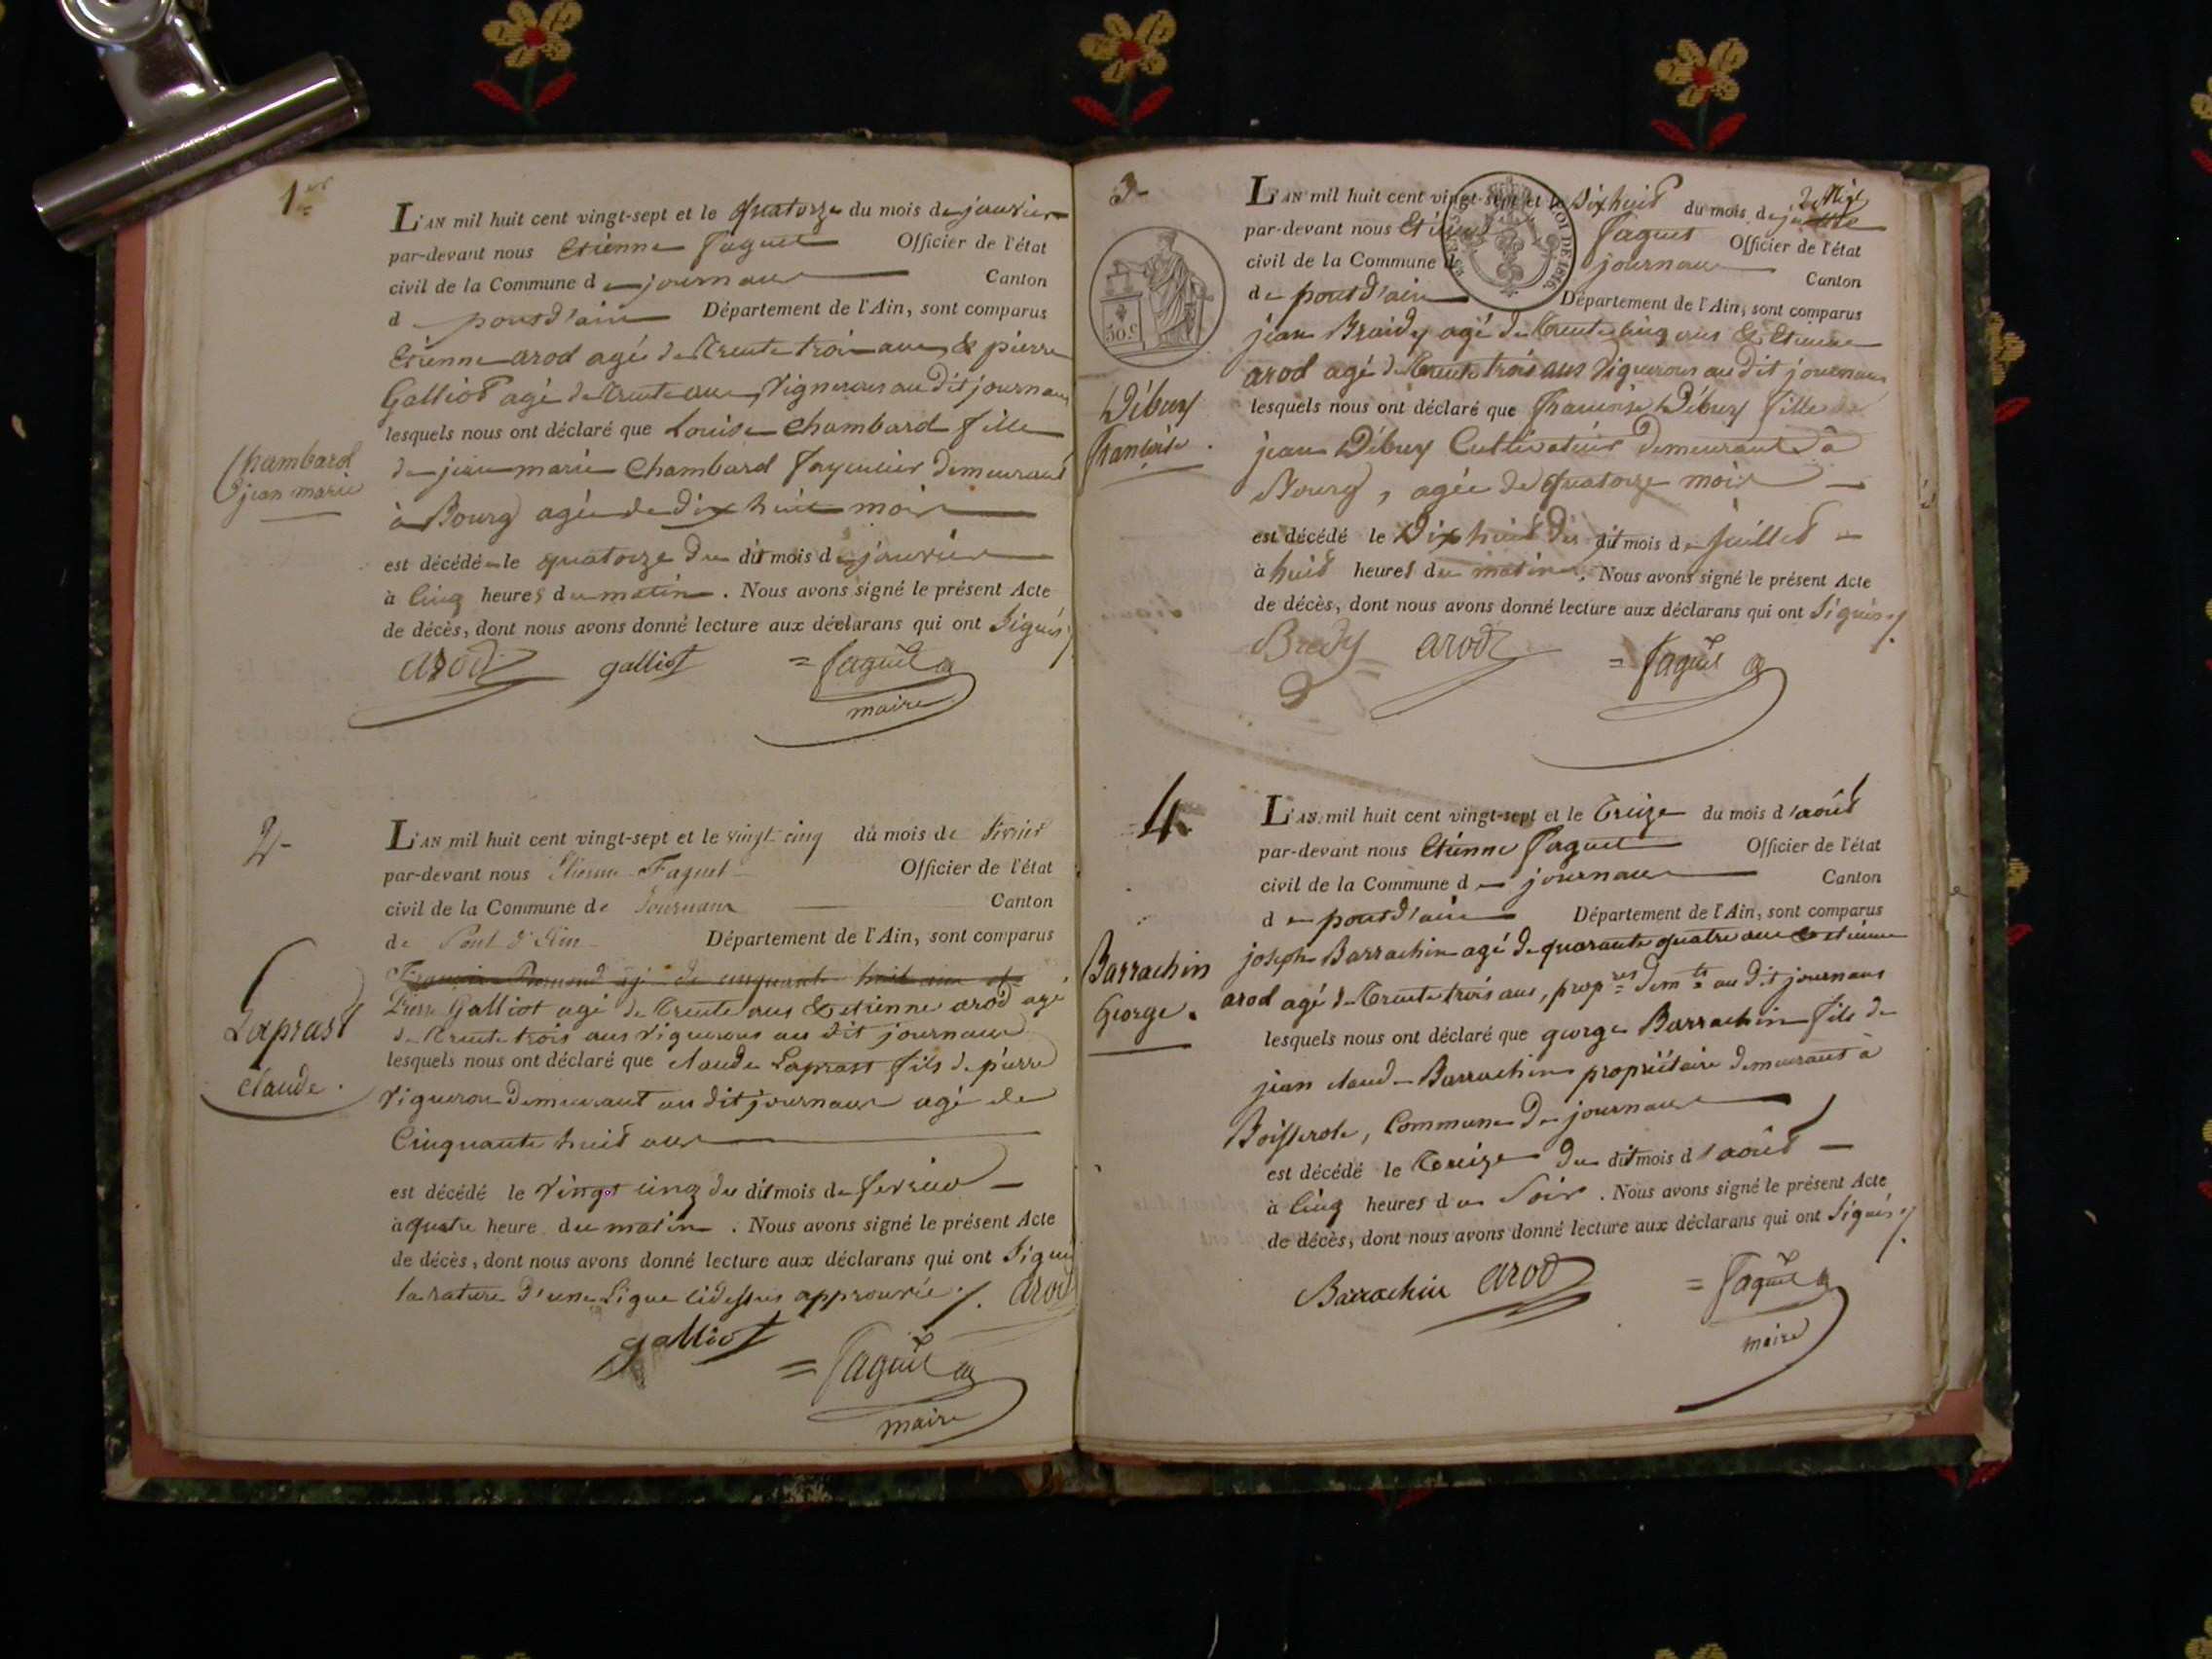 1er
L'AN mil huit cent vingt-sept et le quatorze du mois de janvier
par-devant nous Etienne Faguet Officier de l'état
civil de la Commune de journans Canton
d pont d'ain Département de l'Ain, sont comparus
Etienne arod agé de trente trois ans, & pierre
Galliot agé de trente ans, vignerons au dit journans
lesquels nous ont déclaré que Louise Chambard fille
Chambard
jean marie
de jean marie Chambard demeurant
à Bourg agée de dix huit mois
est décédée le quatorze du dit mois de janvier
à Cinq heures du matin. Nous avons signé le présent Acte
de décès, dont nous avons donné lecture aux déclarans qui ont Signés
arod galliot = faguet
maire
2
L'AN mil huit cent vingt-sept et le vingt-cinq du mois de février
par-devant nous Etienne Faguet Officier de l'état
civil de la Commune de Journans Canton
de Pont d'Ain Département de l'Ain, sont comparus
agé de cinquante huit ans et
Pierre Galliot agé de trente ans & etienne arod agé
de trente trois ans vignerons au dit journans
Laprast
claude.
lesquels nous ont déclaré que claude Laprast fils de pierre
vigneron demeurant au dit journans agé de
Cinquante huit ans
est décédé le vingt cinq du dit mois de fevrier
à quatre heure du matin. Nous avons signé le présent Acte
de décès, dont nous avons donné lecture aux déclarans qui ont Signé
la rature d'une Ligne cidessus approuvée arod
galliot
= faguet
maire
3
L'AN mil huit cent vingt-sept et le Dix huit du mois de juillet
par-devant nous Etienne Faguet Officier de l'état
civil de la Commune de journans Canton
de pont d'ain Département de l'Ain, sont comparus
50 c
jean Braidy agé de trente cinq ans & Etienne
arod agé de trente trois ans vignerons au dit journans
Débury
françoise.
lesquels nous ont déclaré que françoise Débury fille de
jean Débury Cultivateur demeurant à
Bourg, agée de quatorze mois
est décédé le Dix huit du dit mois de juillet
à huit heures du matin. Nous avons signé le présent Acte
de décès, dont nous avons donné lecture aux déclarans qui ont Signés
Bredy arod = faguet
4
L'AN mil huit cent vingt-sept et le treize du mois d'août
par-devant nous Etienne Faguet Officier de l'état
civil de la Commune de journans Canton
de pont d'ain Département de l'Ain, sont comparus
Barrachin
George.
joseph Barrachin agé de quarante quatre ans & etienne
arod agé de trente trois ans, propres demts au dit journans
lesquels nous ont déclaré que george Barrachin fils de
jean claude Barrachin propriétaire demeurant à
Boisserole, Commune de journans
est décédé le treize du dit mois d'août
à Cinq heures du Soir. Nous avons signé le présent Acte
de décès, dont nous avons donné lecture aux déclarans qui ont Signés
Barrachin arod = faguet
maire